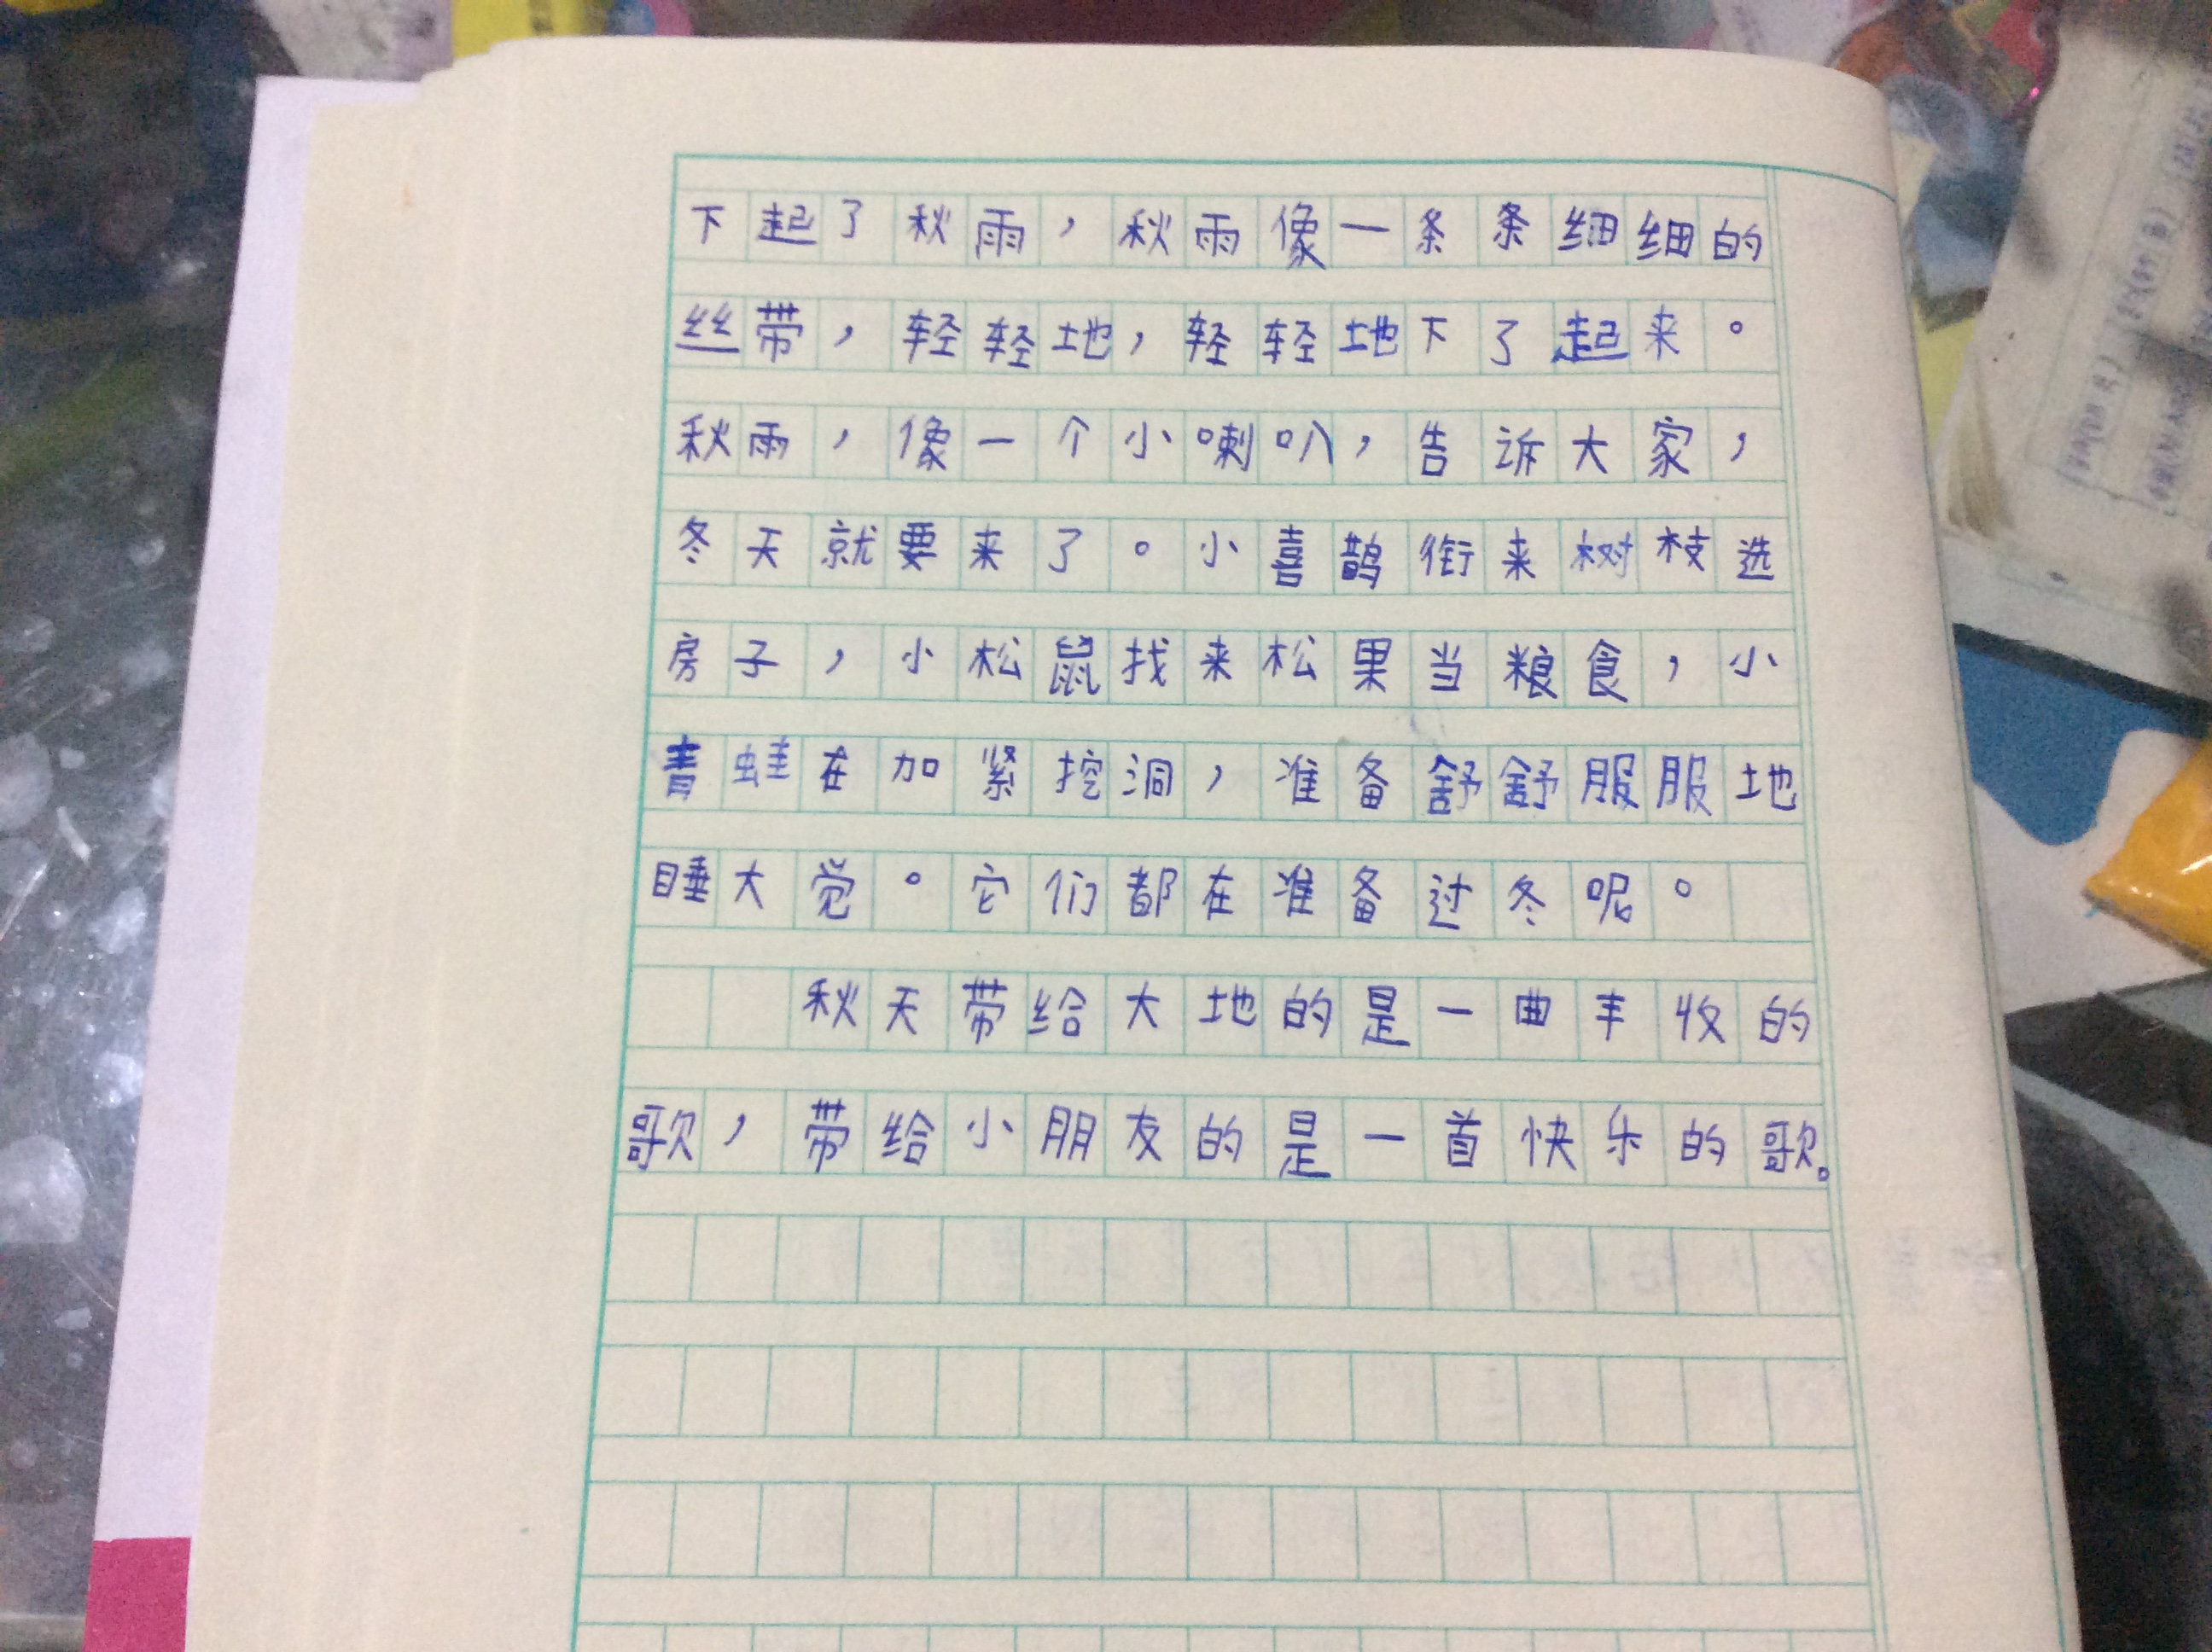 下起了秋雨，秋雨像一条条细细的
丝带，轻轻地，轻轻地下了起来。
秋雨，像一个小喇叭，告诉大家，
冬天就要来了。小喜鹊衔来树枝选
房子，小松鼠找来松果当粮食，小
青蛙在加紧挖洞，准备舒舒服服地
睡大觉。它们都在准备过冬呢。
秋天带给大地的是一曲丰收的
歌，带给小朋友的是一首快乐的歌。